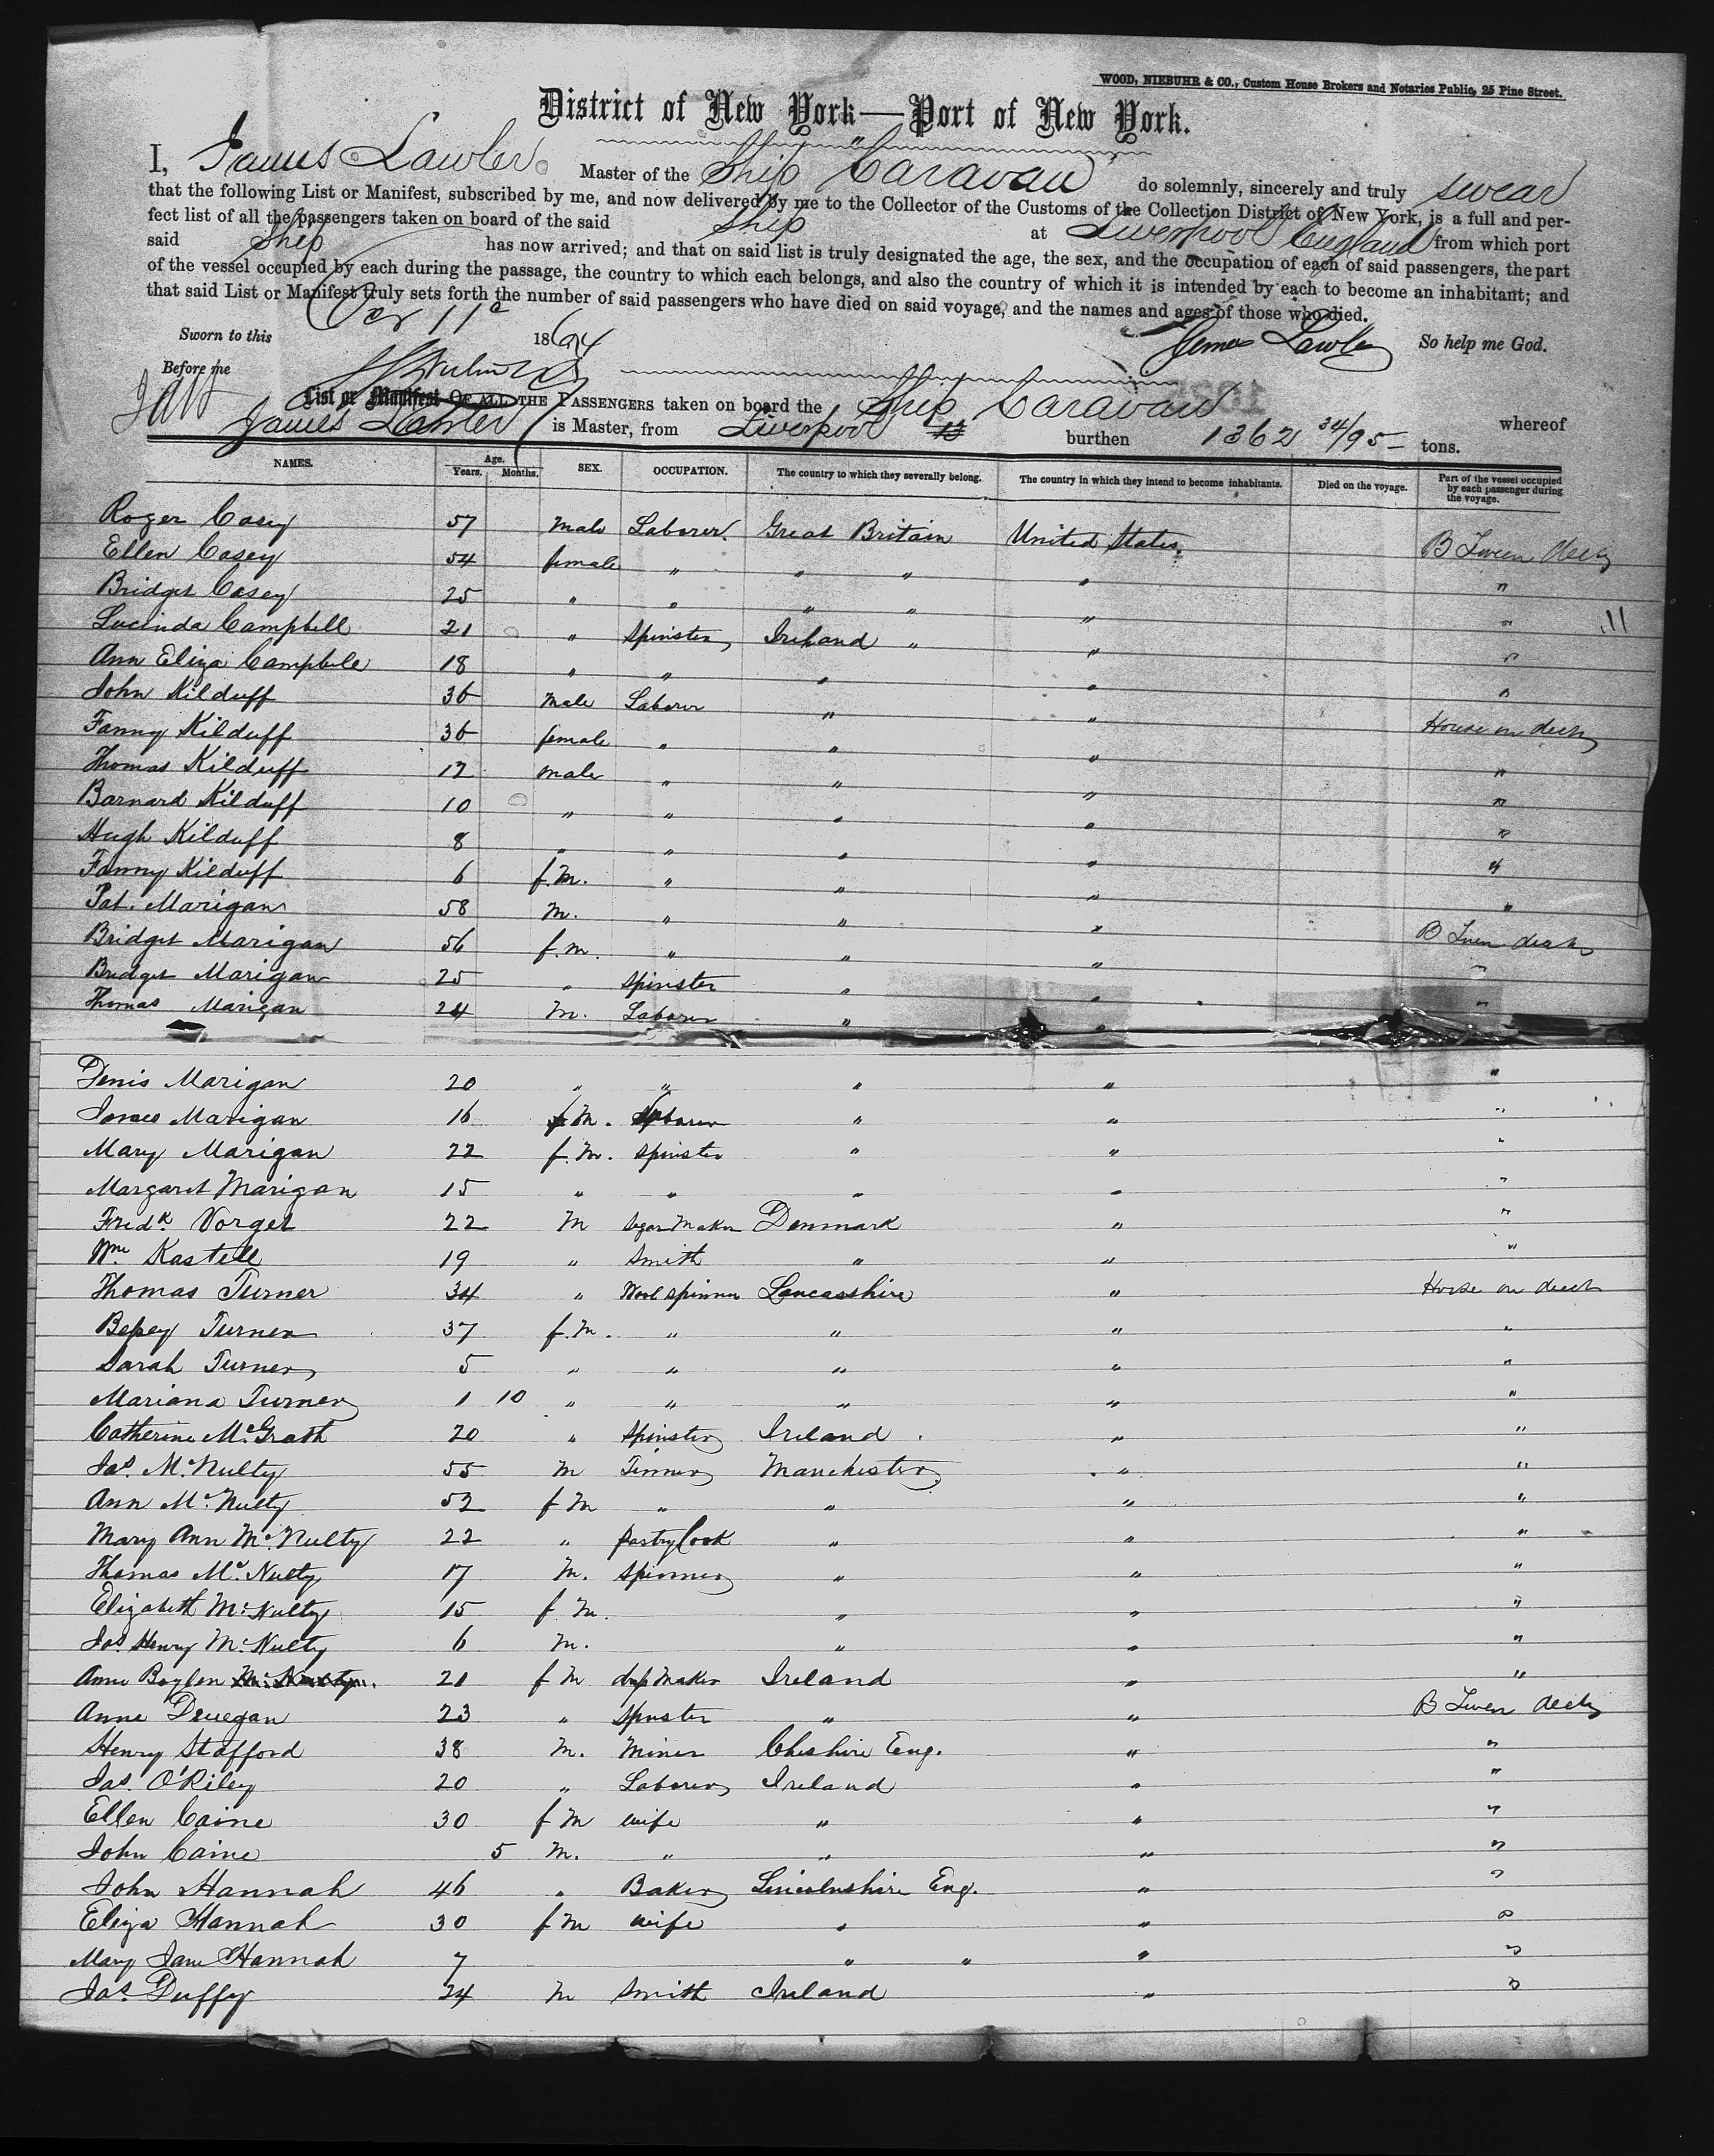 WOOD, NIEBUHR & CO., Custom House Brokers and Notaries Public, 25 Pine Street.
District of New York—Port of New York.
I, James Lawler Master of the Ship "Caravan" do solemnly, sincerely and truly swear
that the following List or Manifest, subscribed by me, and now delivered by me to the Collector of the Customs of the Collection District of New York, is a full and per-
fect list of all the passengers taken on board of the said Ship at Liverpool England from which port
said Ship has now arrived; and that on said list is truly designated the age, the sex, and the occupation of each of said passengers, the part
of the vessel occupied by each during the passage, the country to which each belongs, and also the country of which it is intended by each to become an inhabitant; and
that said List or Manifest truly sets forth the number of said passengers who have died on said voyage, and the names and ages of those who died.
Sworn to this 11 1864 James Lawler So help me God.
Before me
List or Manifest OF ALL THE PASSENGERS taken on board the Ship Caravan whereof
James Lawler is Master, from Liverpool burthen 1362 34/95 tons.
NAMES. Age. Years. Months. SEX. OCCUPATION. The country to which they severally belong. The country in which they intend to become inhabitants. Died on the voyage. Part of the vessel occupied by each passenger during the voyage.
Roger Casey 57 male Laborer Great Britain United States B Tween decks
Ellen Casey 54 female " " " " "
Bridget Casey 25 " " " " " "
Lucinda Campbell 21 " Spinster Ireland " " " 11
Ann Eliza Campbele 18 " " " " "
John Kilduff 36 male Laborer " " House on deck
Fanny Kilduff 36 female " " " "
Thomas Kilduff 12 male " " " "
Barnard Kilduff 10 " " " " "
Hugh Kilduff 8 " " " " "
Fanny Kilduff 6 f.m. " " " "
Pat. Marigan 58 m. " " " B Tween decks
Bridget Marigan 56 f.m. " " " "
Bridget Marigan 25 " Spinster " " "
Thomas Marigan 24 m. Laborer " "
Denis Marigan 20 " " " " "
James Marigan 16 M. Laborer " " "
Mary Marigan 22 f.m. Spinster " " "
Margaret Marigan 15 " " " " "
Fredk. Vorget 22 M Segar Maker Denmark " "
Wm. Kastell 19 " Smith " " "
Thomas Turner 34 " Wool spinner Lancasshire " House on deck
Bepey Turner 37 f.m. " " " "
Sarah Turner 5 " " " " "
Mariana Turner 1 10 " " " " "
Catherine McGrath 20 " Spinster Ireland " "
Jas. McNulty 55 M Tinner Manchester " "
Ann McNulty 52 f m " " " "
Mary Ann McNulty 22 " pastry Cook " " "
Thomas McNulty 17 M. Spinner " " "
Elizabeth McNulty 15 f.m. " " "
Jas. Henry McNulty 6 M. " " "
Anne Boylen 21 f m Maker Ireland " "
Anne 23 " Spinster " " B Tween decks
Henry Stafford 38 M. Miner Cheshire Eng. " "
Jas. O'Riley 20 " Laborer Ireland " "
Ellen Caine 30 f m wife " " "
John Caine 5 M. " " " "
John Hannah 46 " Baker Lincolnshire Eng. " "
Eliza Hannah 30 f m wife " " "
Mary Jane Hannah 7 " " " "
Jas. Duffy 24 M Smith Ireland " "